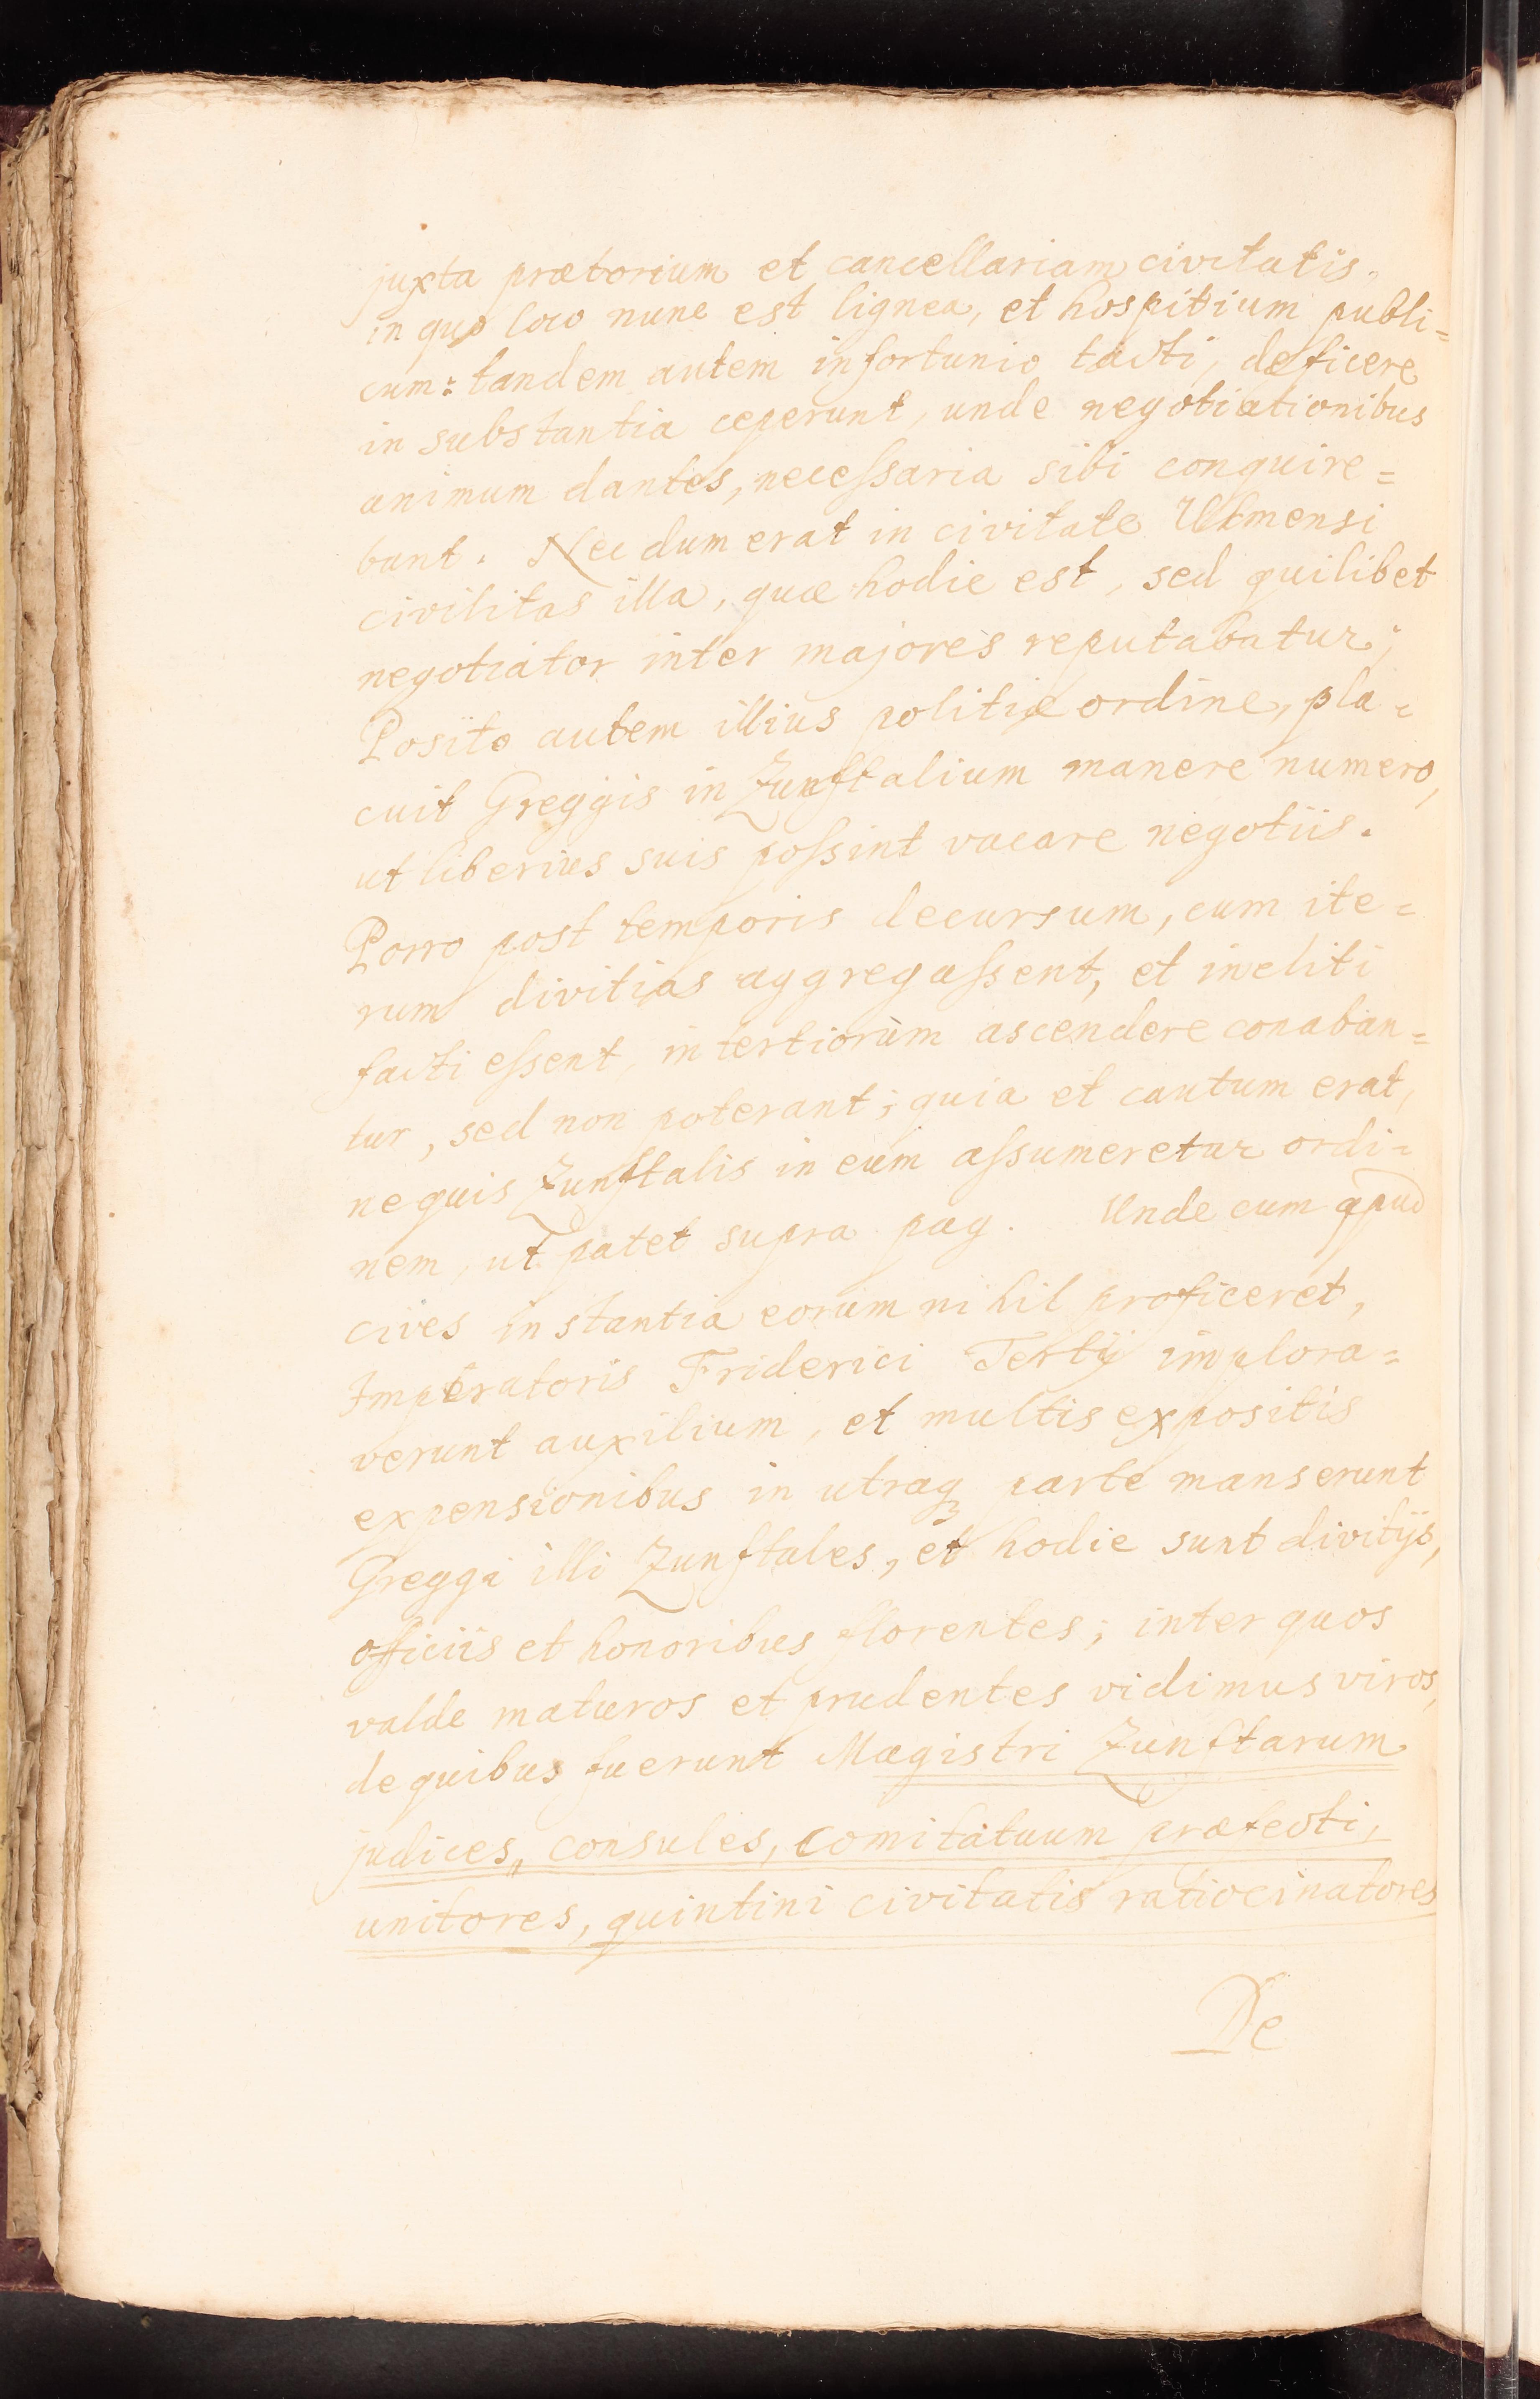 juxta prætorium et cancellariam civitatis,
in quo loco nunc est lignea, et hospitium publi=
cum: tandem autem infortunio tacti, deficere
in substantia ceperunt, unde negotiationibus
animum dantes, necessaria sibi conquire=
bant. Nec dum erat in civitate Ulmensi
civilitas illa, quæ hodie est, sed quilibet
negotiator inter majores reputabatur;
Posito autem illius politiæ ordine, pla=
cuit Greggis in Zunftalium manere numero,
ut liberius suis possint vacare negotiis.
Porro post temporis decursum, cum ite=
rum divitias aggregassent, et incliti
facti essent, in tertiorum ascendere conaban=
tur, sed non poterant; quia et cautum erat,
ne quis Zunftalis in eum assumeretur ordi=
nem, ut patet supra pag. Unde cum apud
cives instantia eorum nihil proficeret,
Imperatoris Friderici Tertij implora=
verunt auxilium, et multis expositis
expensionibus in utraq3 parte manserunt
Greggi illi Zunftales, et hodie sunt divitijs,
officiis et honoribus florentes; inter quos
valde maturos et prudentes vidimus viros,
de quibus fuerunt Magistri Zunftarum
judices, consules, comitatuum præfecti,
unitores, quintini civitatis ratiocinatores
De